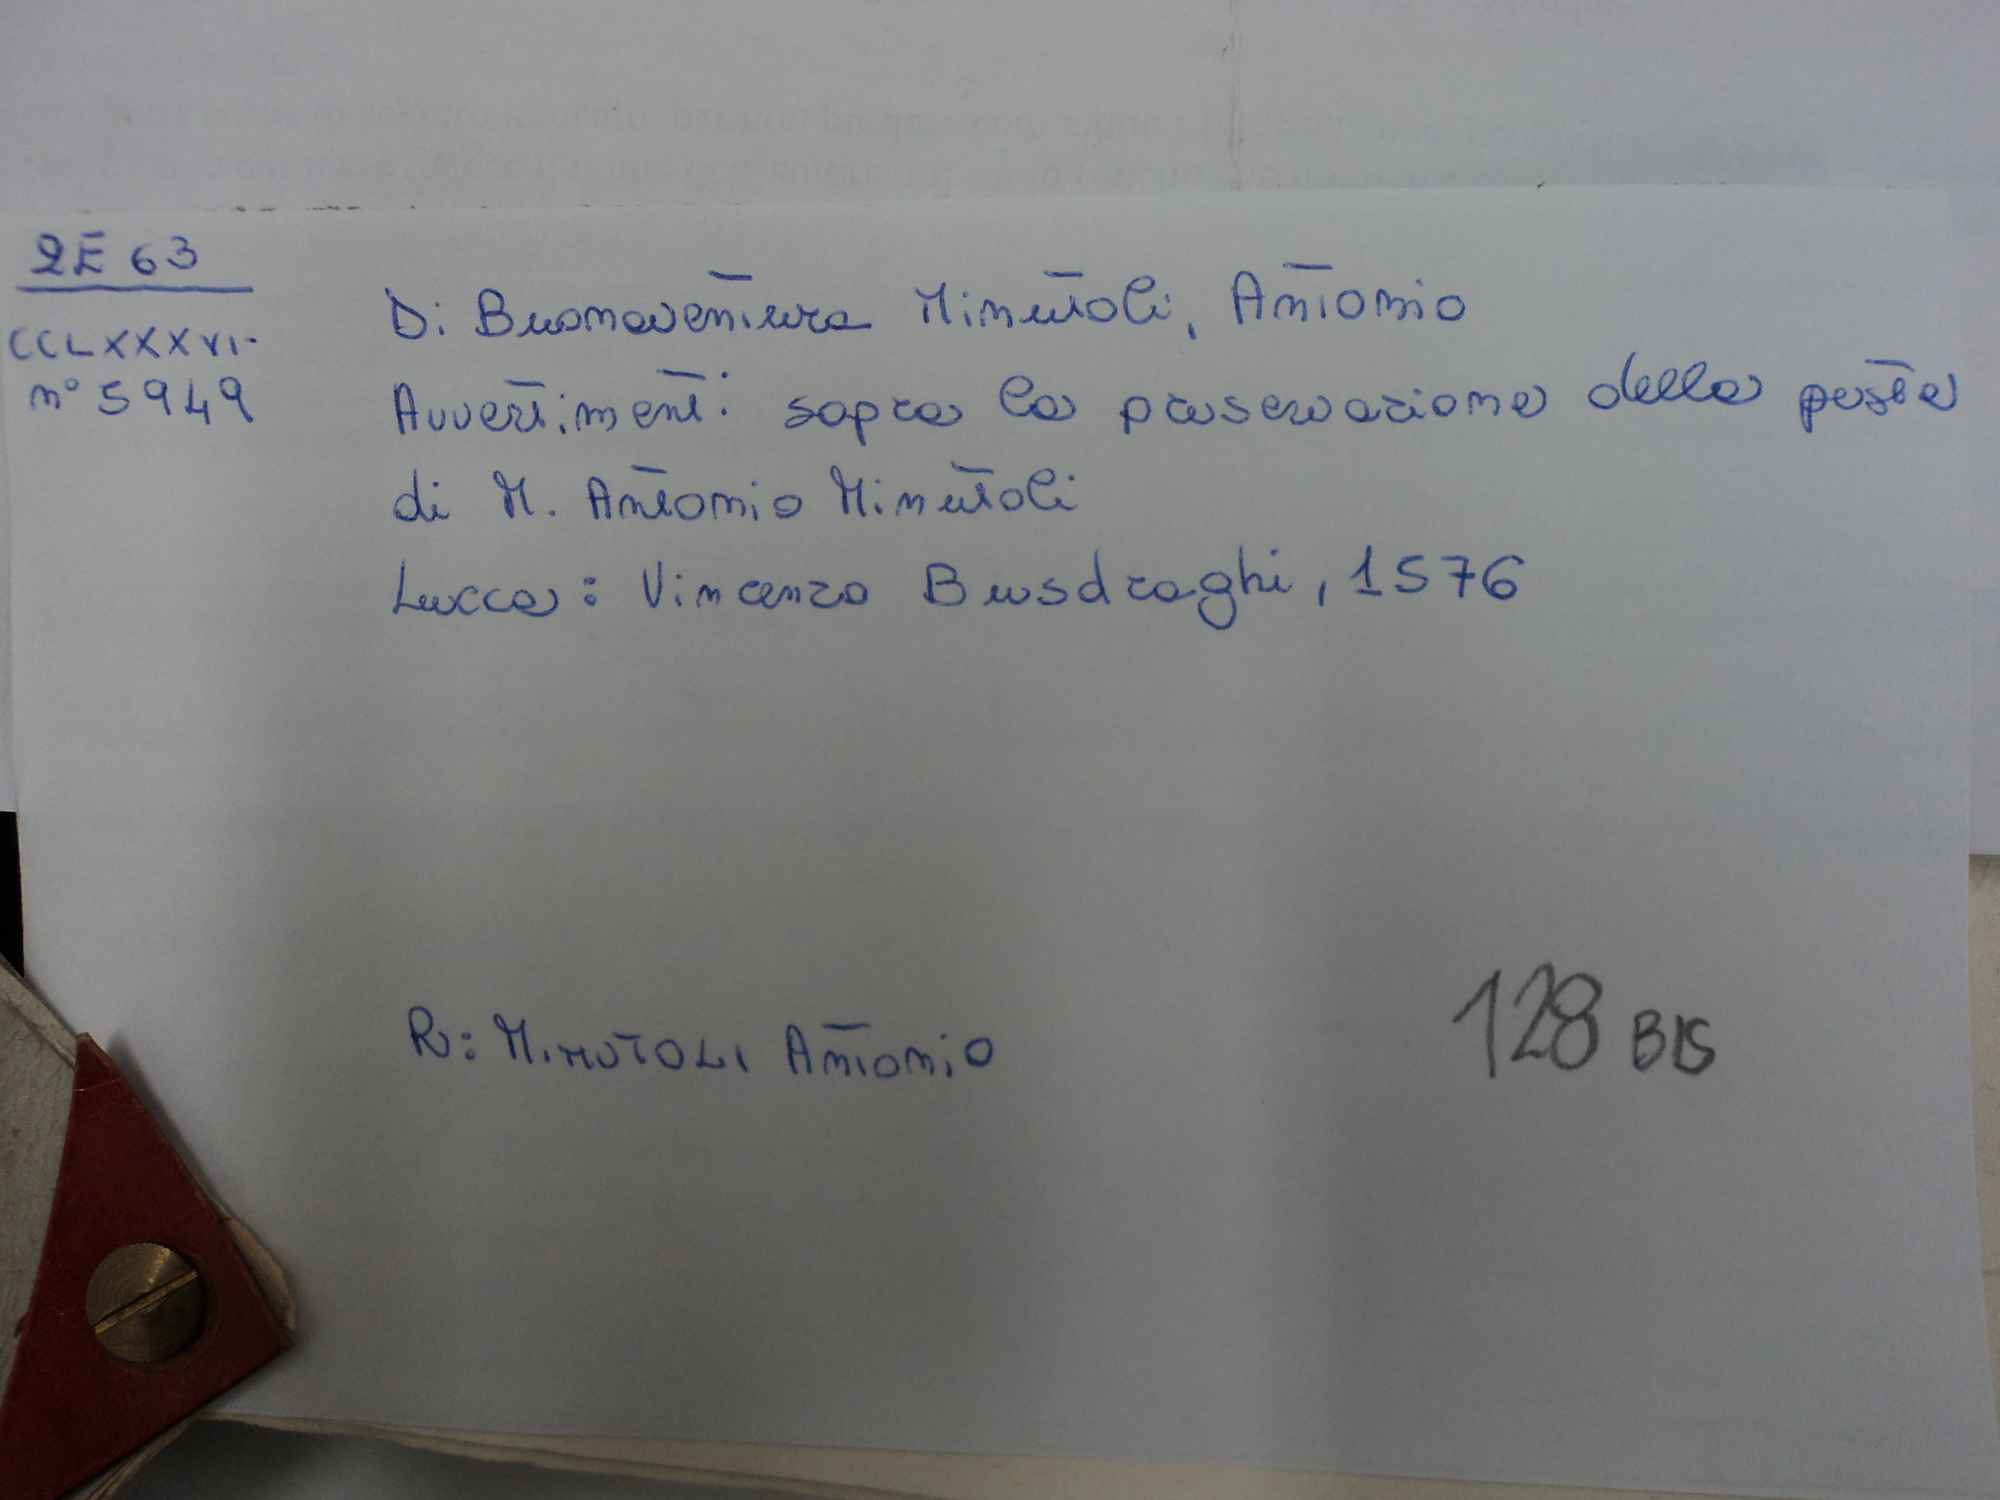 2E 63
CCLXXXVI.
n° 5949
Di Buonaventura Minutoli, Antonio
Avvertimenti sopra la preservazione della peste
di M. Antonio Minutoli
Lucca: Vincenzo Busdraghi, 1576
R: MINUTOLI Antonio
128 BIS